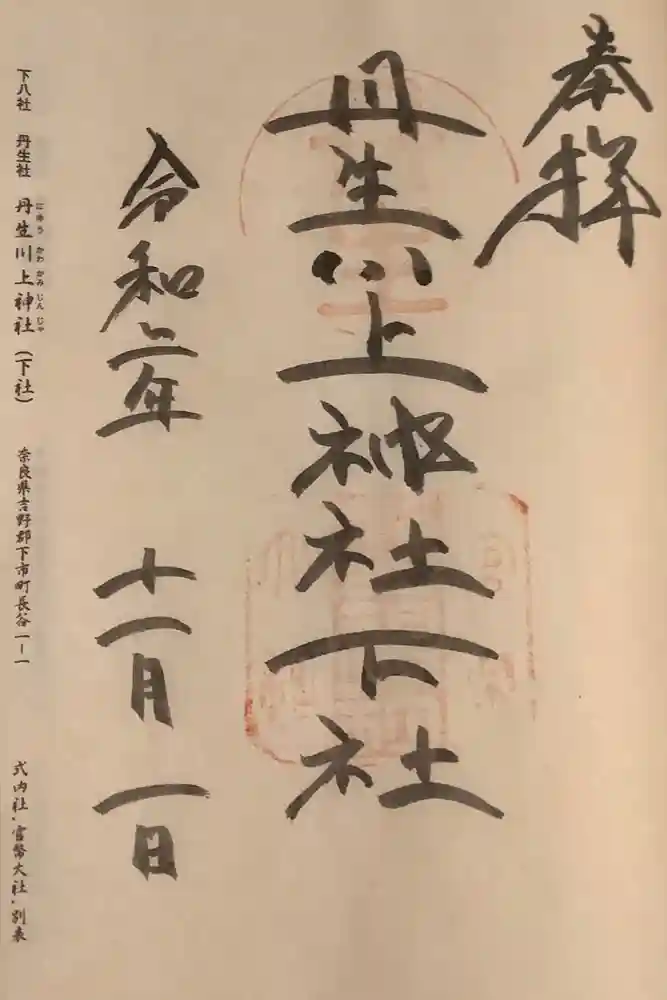 奉拝
丹生川上神社下社
令和二年 十一月 一日
下八社 丹生社 丹生川上神社(下社) 奈良県吉野郡下市町長谷一ー一 式内社、官幣大社、別表
にゅう かわ かみ じん じゃ